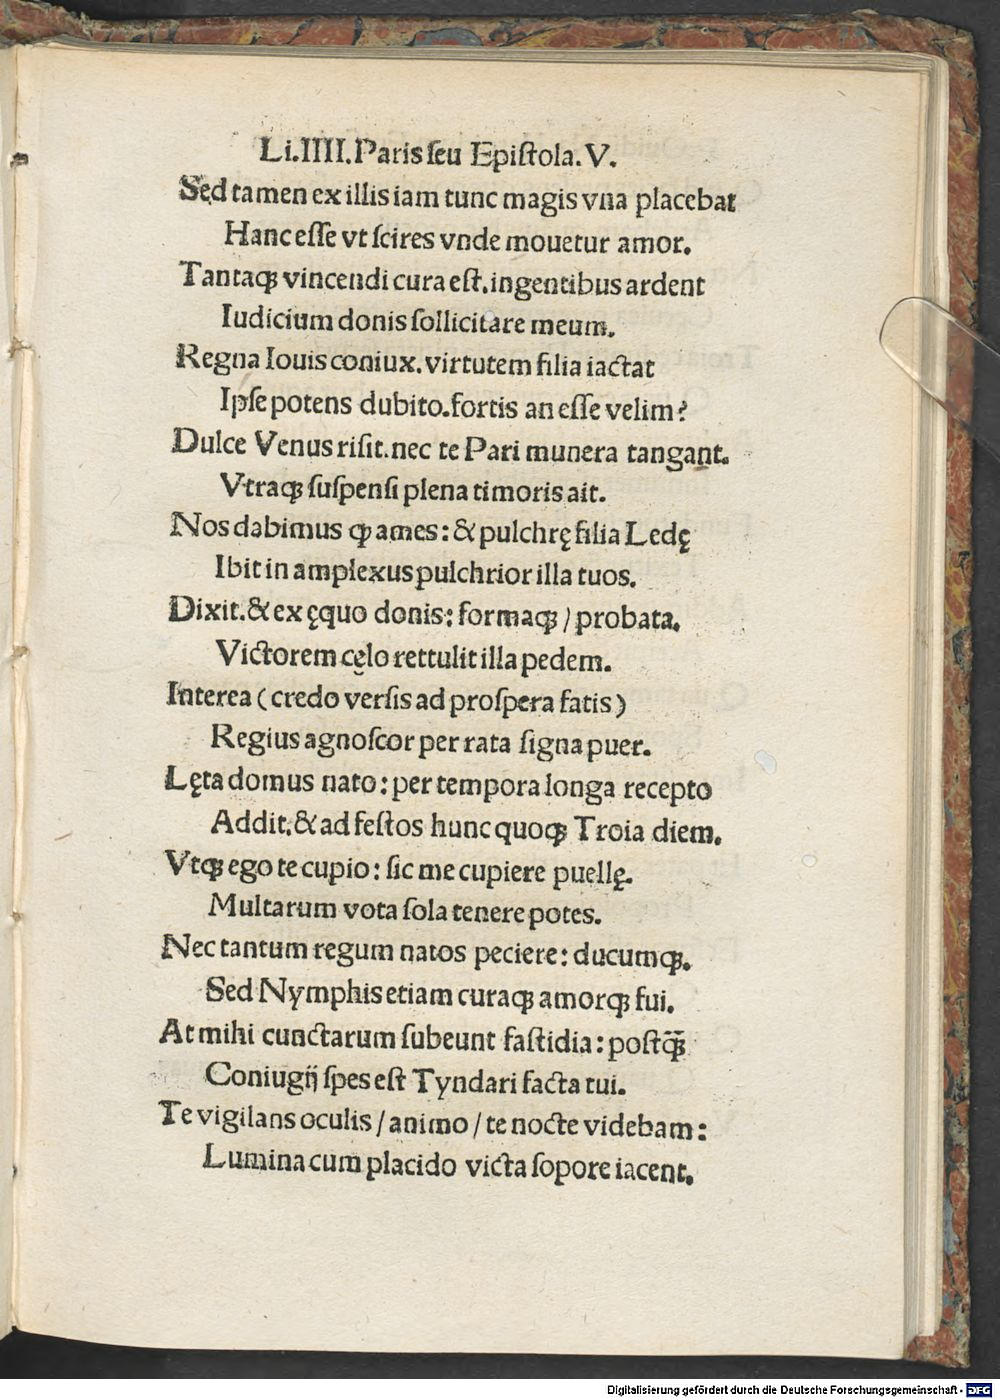 Li.IIII.Paris seu Epistola.V.
Sed tamen ex illis iam tunc magis vna placebat
Hanc esse vt scires vnde mouetur amor.
Tantaqꝫ vincendi cura est.ingentibus ardent
Iudicium donis sollicitare meum.
Regna Iouis coniux.virtutem filia iactat
Ipse potens dubito.fortis an esse velim?
Dulce Venus risit.nec te Pari munera tangant.
Vtraqꝫ suspensi plena timoris ait.
Nos dabimus ꝙ ames: & pulchrę filia Ledę
Ibit in amplexus pulchrior illa tuos.
Dixit.& ex ęquo donis: formaqꝫ / probata.
Victorem cęlo rettulit illa pedem.
Interea (credo versis ad prospera fatis)
Regius agnoscor per rata signa puer.
Lęta domus nato: per tempora longa recepto
Addit.& ad festos hunc quoqꝫ Troia diem.
Vtqꝫ ego te cupio: sic me cupiere puellę.
Multarum vota sola tenere potes.
Nec tantum regum natos peciere: ducumqꝫ.
Sed Nymphis etiam curaqꝫ amorqꝫ fui.
At mihi cunctarum subeunt fastidia: postq̄ꝫ
Coniugij spes est Tyndari facta tui.
Te vigilans oculis / animo / te nocte videbam:
Lumina cum placido victa sopore iacent.
Digitalisierung gefördert durch die Deutsche Forschungsgemeinschaft - DFG